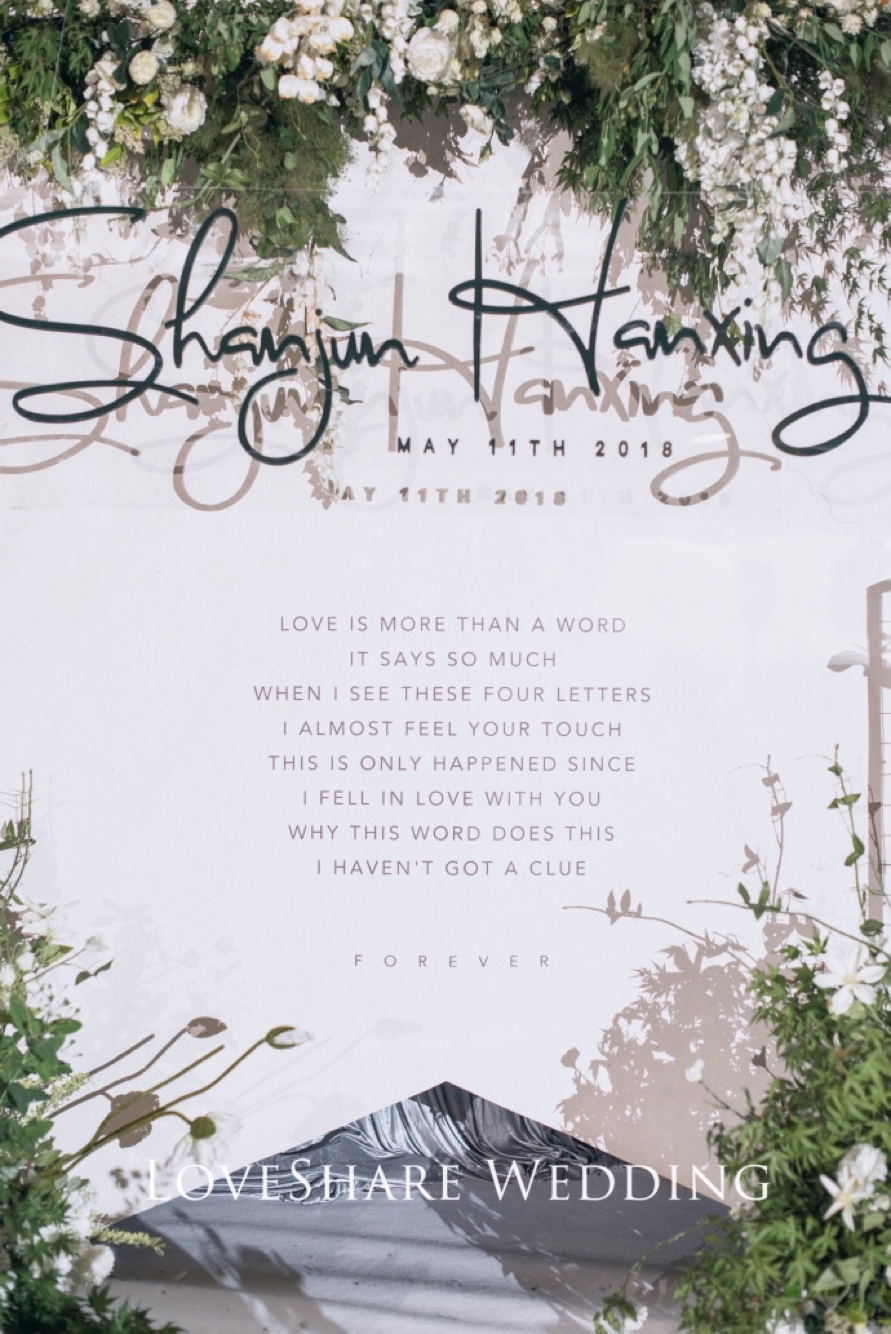 Shanjun Hanxing
MAY 11TH 2018
LOVE IS MORE THAN A WORD
IT SAYS SO MUCH
WHEN I SEE THESE FOUR LETTERS
I ALMOST FEEL YOUR TOUCH
THIS IS ONLY HAPPENED SINCE
I FELL IN LOVE WITH YOU
WHY THIS WORD DOES THIS
I HAVEN'T GOT A CLUE
FOREVER
LOVESHARE WEDDING